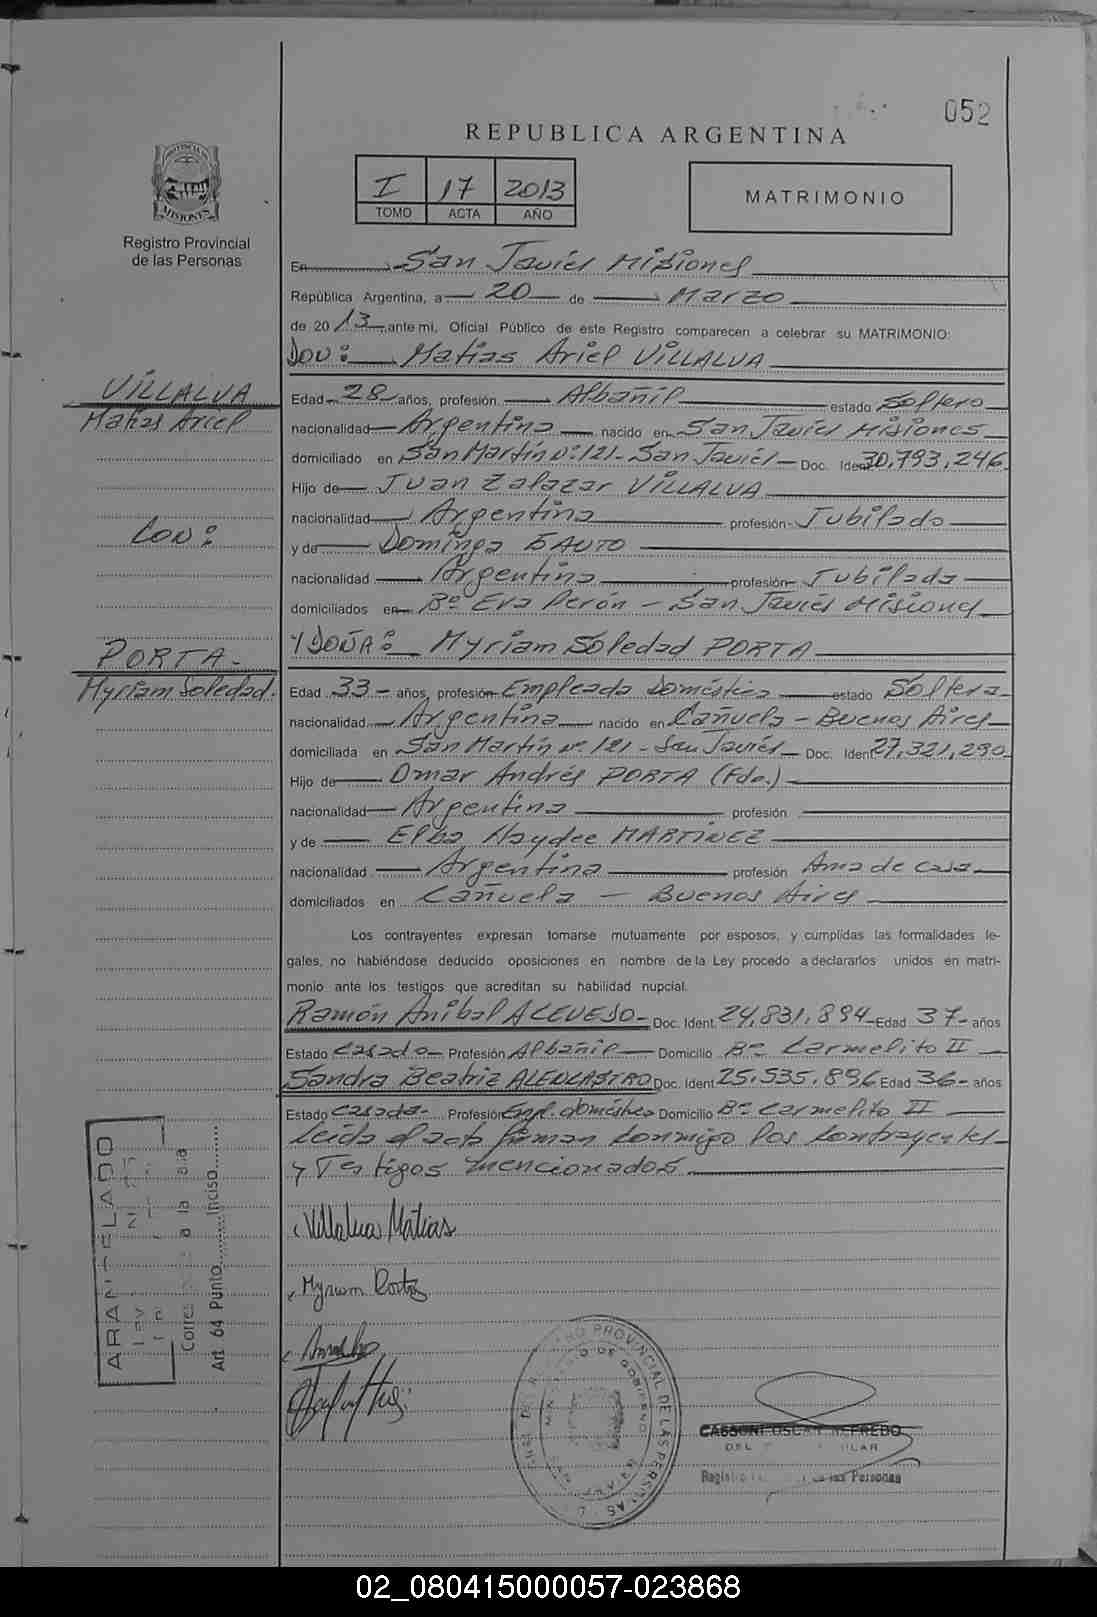 052
REPUBLICA ARGENTINA
PROVINCIA DE MISIONES
Registro Provincial
de las Personas
I 17 2013
TOMO ACTA AÑO
MATRIMONIO
En San Javier Misiones
República Argentina, a 20 de Marzo
de 2013, ante mi, Oficial Público de este Registro comparecen a celebrar su MATRIMONIO:
DON: Matias Ariel VILLALVA
VILLALVA
Matias Ariel
Edad 28 años, profesión Albañil estado Soltero
nacionalidad Argentina nacido en San Javier Misiones
domiciliado en San Martín nº 121 - San Javier - Doc. Ident 30,793,246
Hijo de Juan Zalazar VILLALVA
nacionalidad Argentina profesión Jubilado
CON:
y de Dominga FAUTO
nacionalidad Argentina profesión Jubilada
domiciliados en Bº Eva Perón - San Javier Misiones
Y DOÑA: Myriam Soledad PORTA
PORTA -
Myriam Soledad.
Edad 33 - años, profesión Empleada Doméstica estado Soltera
nacionalidad Argentina nacido en Cañuela - Buenos Aires
domiciliada en San Martín nº 121 - San Javier - Doc. Ident 27,321,290
Hijo de Omar Andrés PORTA (Fdo.)
nacionalidad Argentina profesión
y de Elba Haydee MARTINEZ
nacionalidad Argentina profesión Ama de casa
domiciliados en Cañuela - Buenos Aires
Los contrayentes expresan tomarse mutuamente por esposos, y cumplidas las formalidades le-
gales, no habiéndose deducido oposiciones en nombre de la Ley procedo a declararlos unidos en matri-
monio ante los testigos que acreditan su habilidad nupcial.
Ramón Anibal ACEVEDO - Doc. Ident. 24,831,894 - Edad 37 - años
Estado Casado - Profesión Albañil - Domicilio Bº Carmelito II
Sandra Beatriz ALENCASTRO Doc. Ident 25.535.896 Edad 36 - años
Estado Casada - Profesión Empl. doméstica Domicilio Bº Carmelito II
Leida el acta firman conmigo los contrayentes
y Testigos mencionados
Villalva Matias
Myriam Porta
ARANCELADO
a la
Art. 64 Punto Inciso
REGISTRO PROVINCIAL DE LAS PERSONAS
MINISTERIO DE GOBIERNO
CASSONI OSCAR ALFREDO
Registro de las Personas
02_080415000057-023868